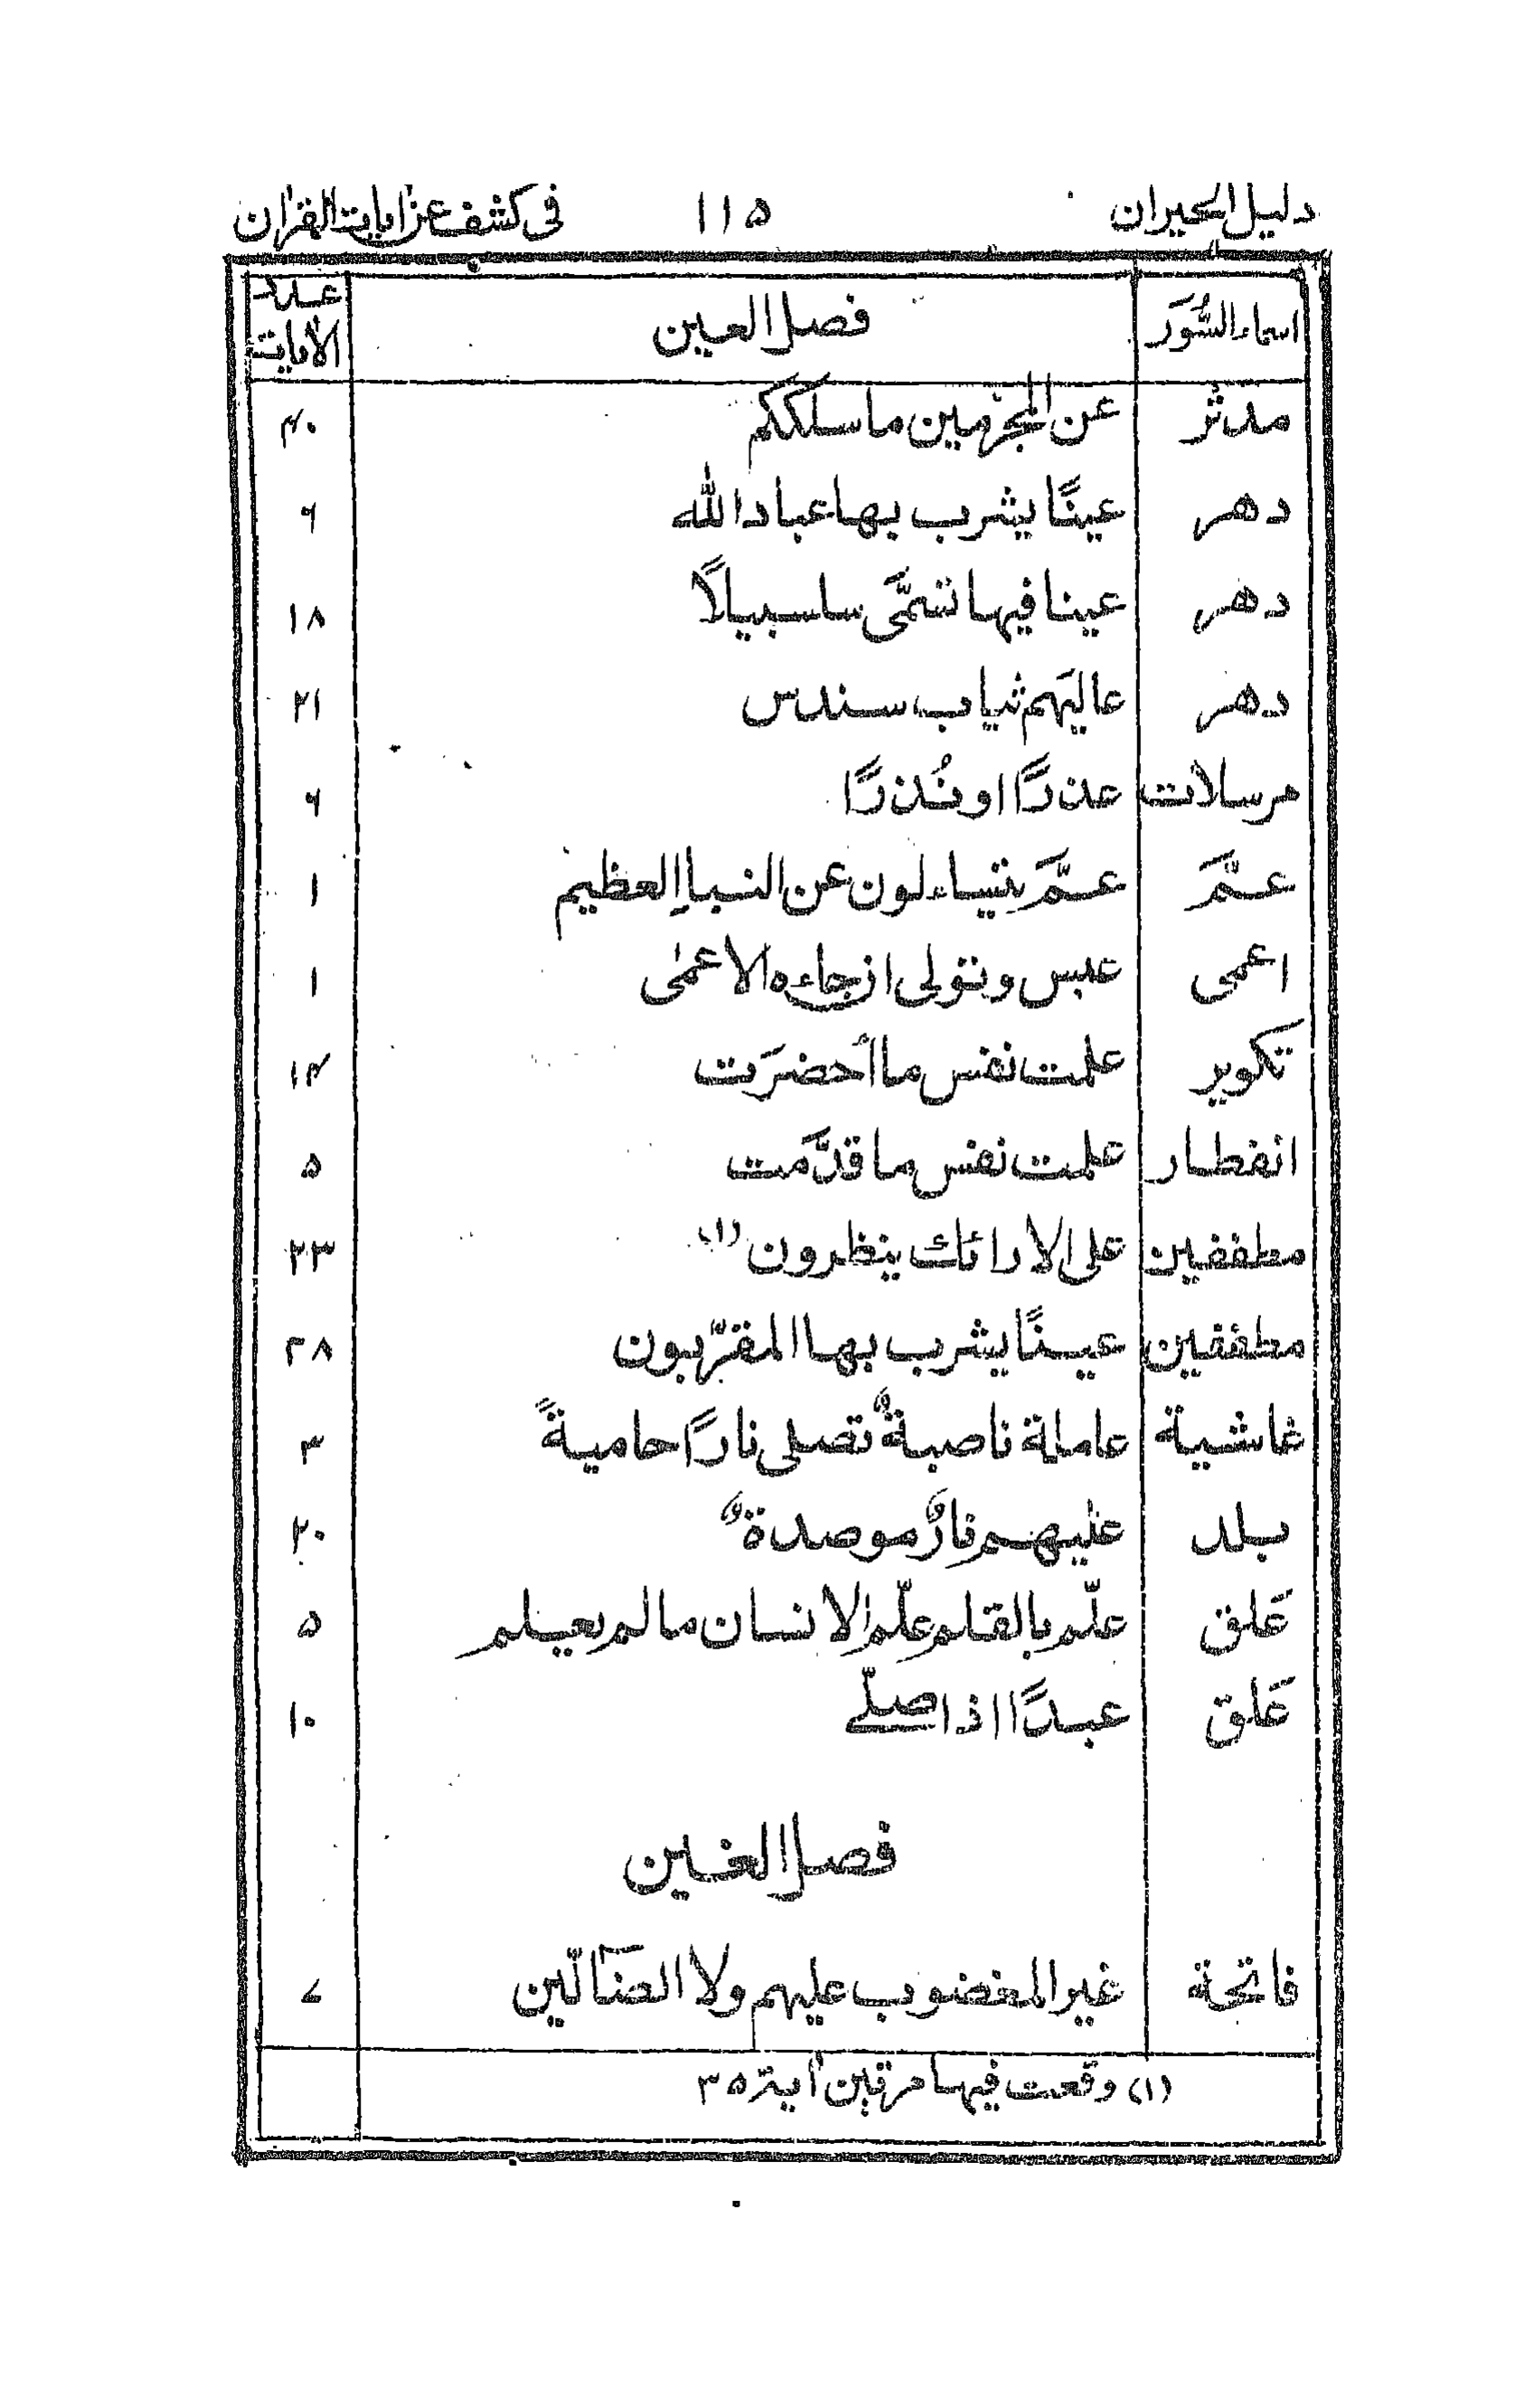 دليل الحيران ١١٥ فى كشف عن اٰيات القراٰن
اسماء السُّوَر فصل العين عدد الاٰيات
مدثر عن المجرمين ما سلككم ۴۰
دهر عينًا يشرب بها عباد الله ۶
دهر عينا فيها تسمَّى سلسبيلًا ۱۸
دهر عاليَهم ثياب سندس ۲۱
مرسلات عذرًا او نُذرًا ۶
عمَّ عمَّ يتساءلون عن النباِ العظيم ۱
اعمى عبس وتولى ان جاءه الاعمٰى ۱
تكوير علمت نفس ما اَحضرَت ۱۴
انفطار علمت نفس ما قدَّمَت ۵
مطففين على الارائك ينظرون (۱) ۲۳
مطففين عينًا يشرب بها المقرّبون ۲۸
غاشية عاملة ناصبةٌ تصلى نارًا حاميةً ۳
بلد عليهم نارٌ موصدةٌ ۲۰
عَلق علّم بالقلم علّم الانسان ما لم يعلم ۵
عَلق عبدًا اذا صلّے ۱۰
فصل الغين
فاتحة غير المغضوب عليهم ولا الضَآلّين ۷
(۱) وقعت فيها مرتين اٰية ۳۵